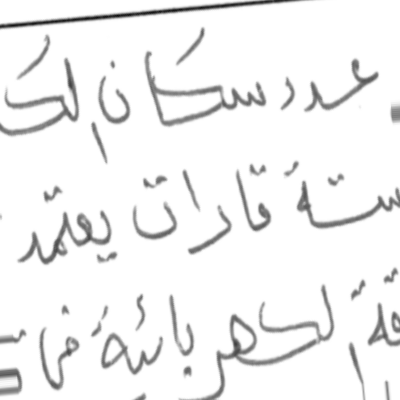 عدد سكان لك
ستة قارات يعتمد
قة لكهربائية في